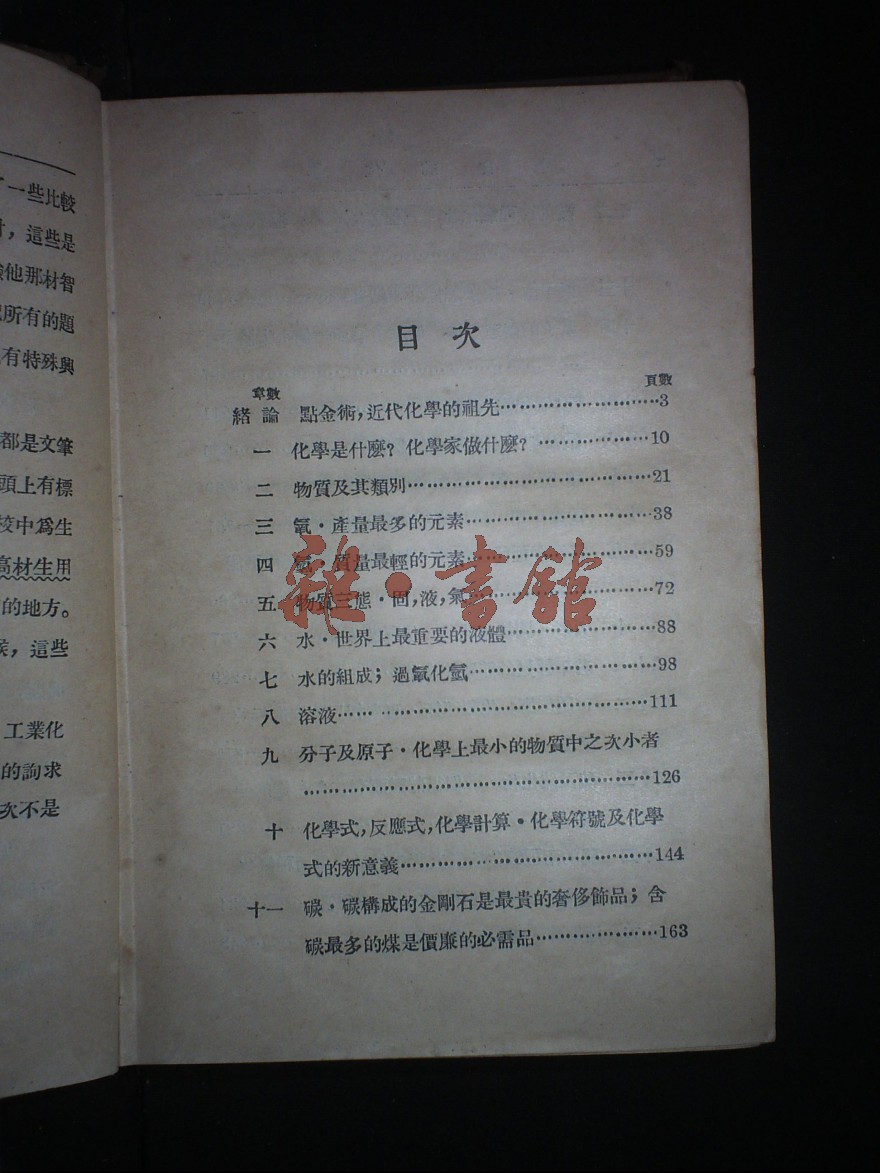 一些比較
，這些是
他那材智
所有的題
有特殊興
都是文筆
頭上有標
校中爲生
高材生用
的地方。
，這些
工業化
的詢求
次不是
目次
章數 頁數
緒論 點金術，近代化學的祖先……………………3
一 化學是什麽？化學家做什麽？………………10
二 物質及其類別………………………………21
三 氧·產量最多的元素………………………38
四 氫·質量最輕的元素………………………59
五 物質三態·固，液，氣………………………72
六 水·世界上最重要的液體…………………88
七 水的組成；過氧化氫………………………98
八 溶液…………………………………………111
九 分子及原子·化學上最小的物質中之次小者
………………………………………………126
十 化學式，反應式，化學計算·化學符號及化學
式的新意義…………………………………144
十一 碳·碳構成的金剛石是最貴的奢侈飾品；含
碳最多的煤是價廉的必需品………………163
雜·書館